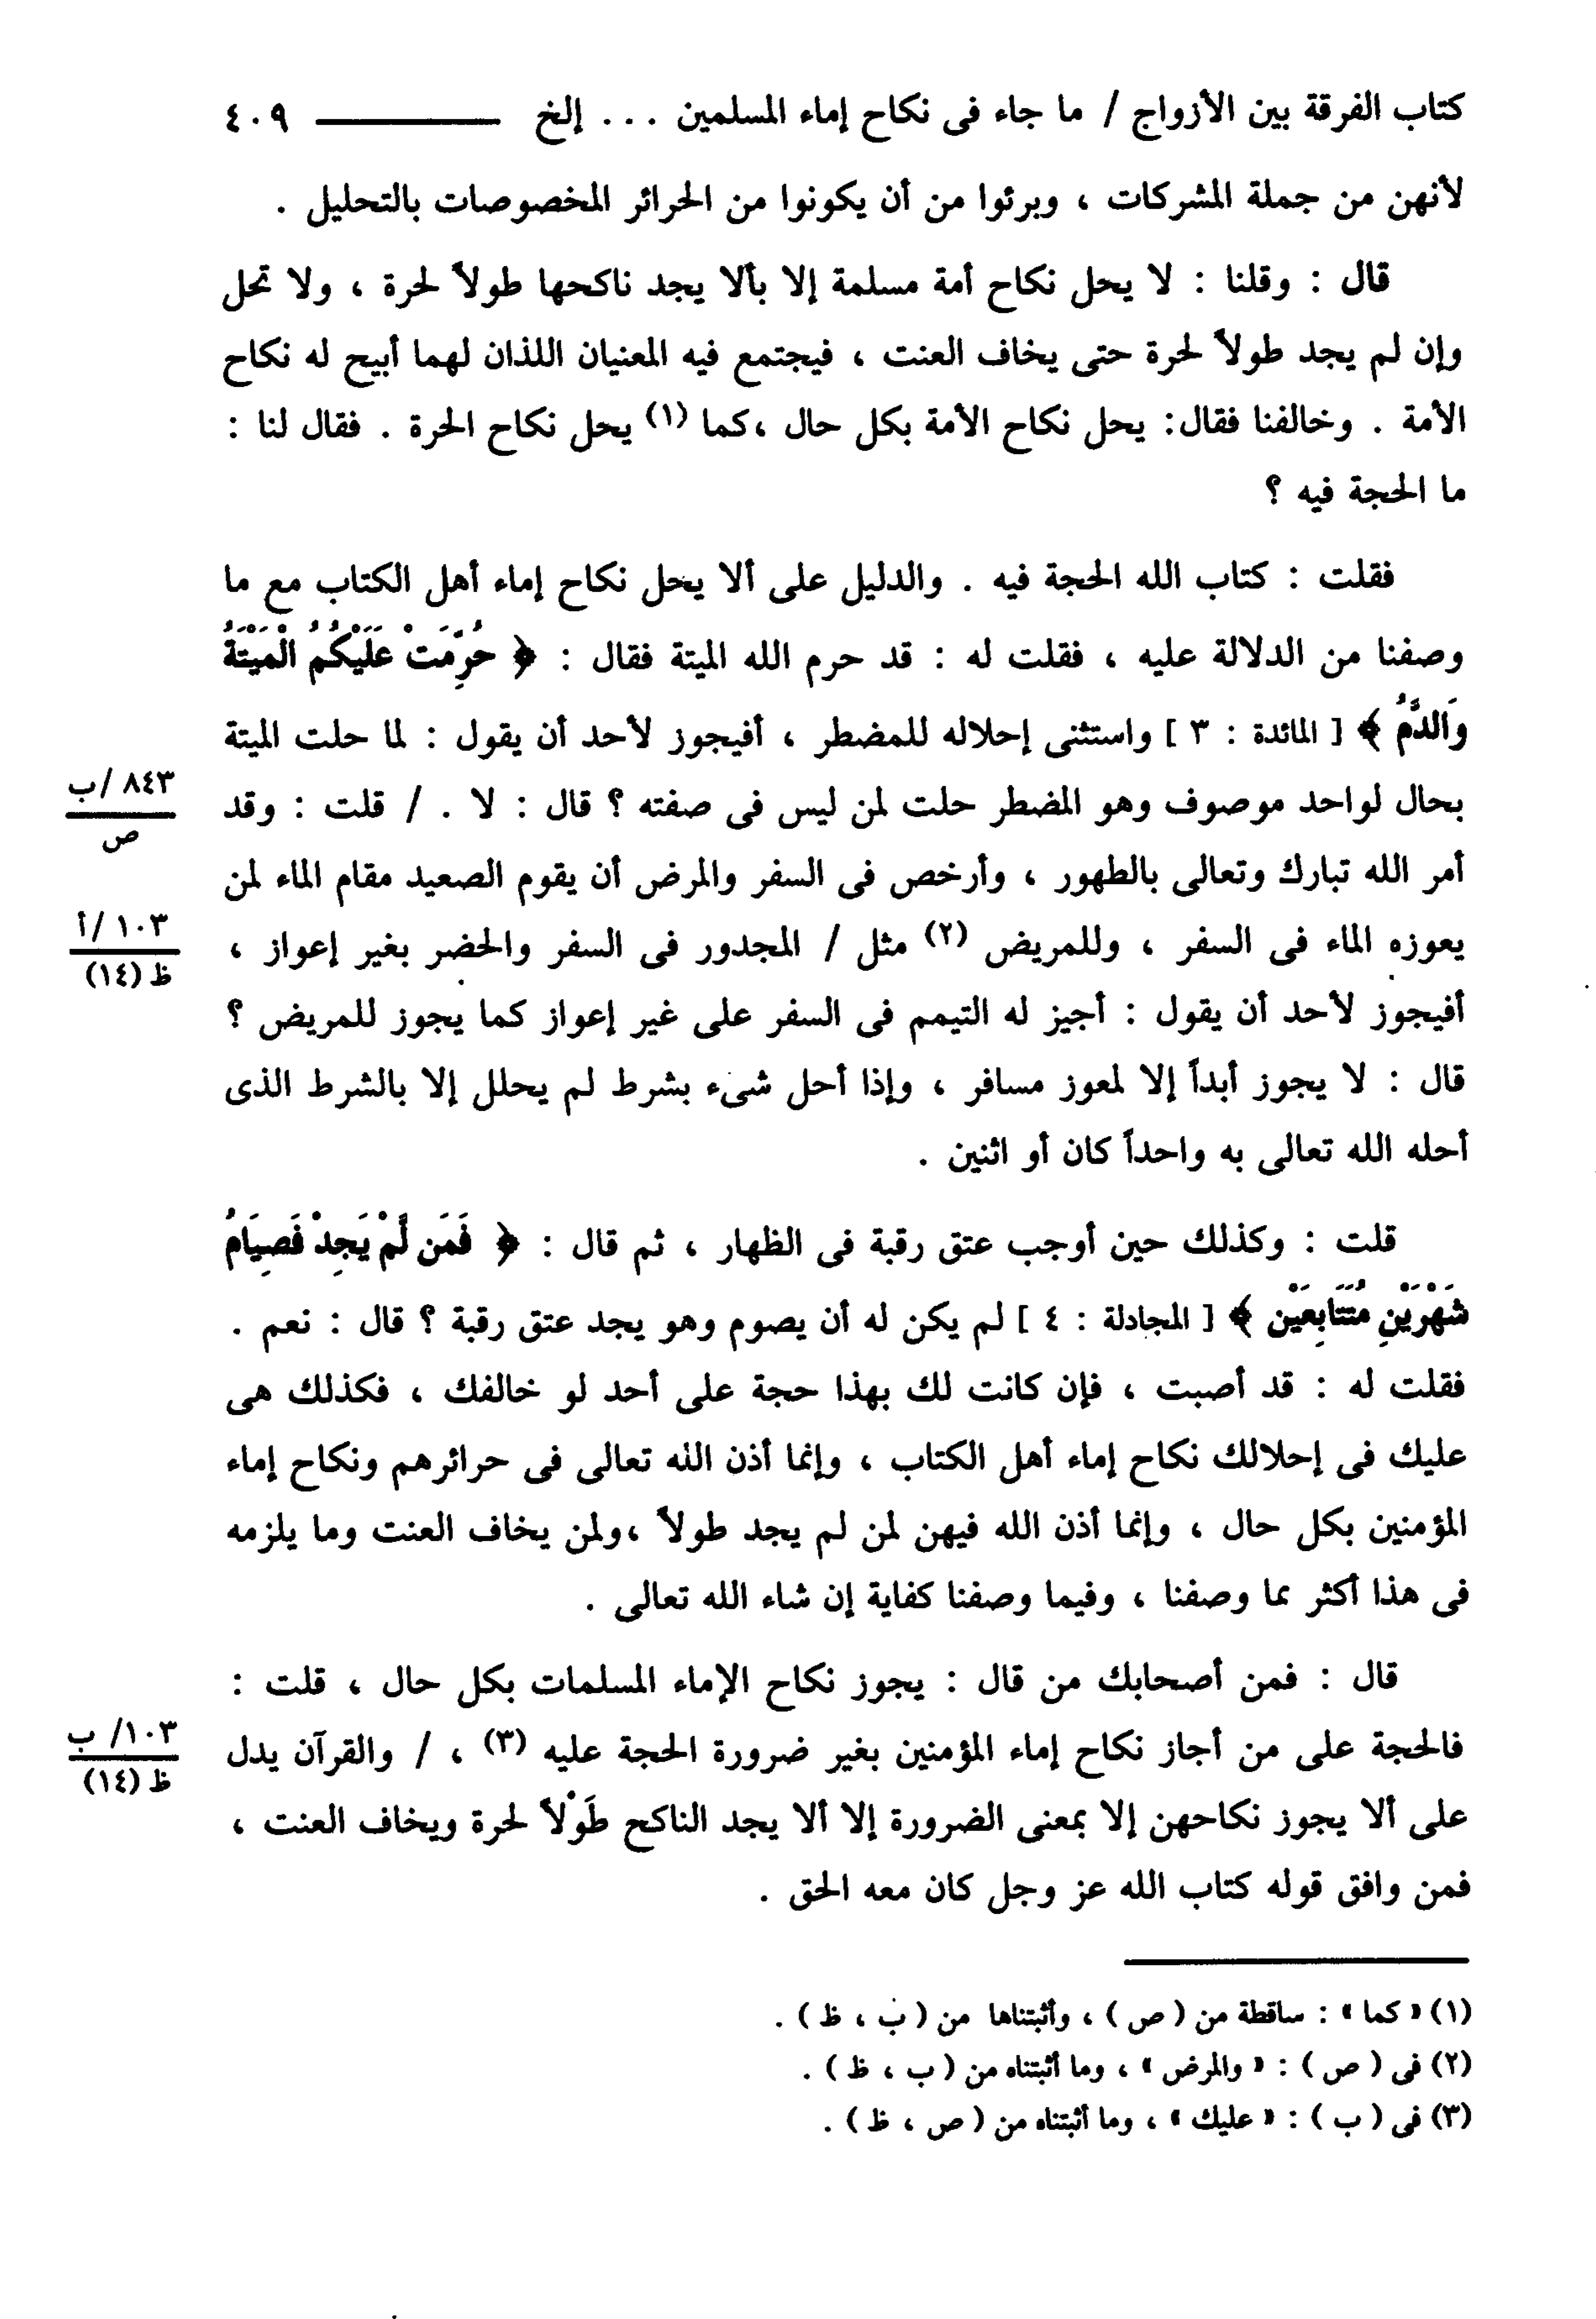 كتاب الفرقة بين الأزواج / ما جاء فى نكاح إماء المسلمين ... إلخ ــــــــــ ٤٠٩
لأنهن من جملة المشركات ، وبرئوا من أن يكونوا من الحرائر المخصوصات بالتحليل .
قال : وقلنا : لا يحل نكاح أمة مسلمة إلا بألا يجد ناكحها طولاً لحرة ، ولا تحل
وإن لم يجد طولاً لحرة حتى يخاف العنت ، فيجتمع فيه المعنيان اللذان لهما أبيح له نكاح
الأمة . وخالفنا فقال: يحل نكاح الأمة بكل حال ،كما (١) يحل نكاح الحرة . فقال لنا :
ما الحجة فيه ؟
فقلت : كتاب الله الحجة فيه . والدليل على ألا يحل نكاح إماء أهل الكتاب مع ما
وصفنا من الدلالة عليه ، فقلت له : قد حرم الله الميتة فقال : ﴿ حُرِّمَتْ عَلَيْكُمُ الْمَيْتَةُ
وَالدَّمُ ﴾ [ المائدة : ٣ ] واستثنى إحلاله للمضطر ، أفيجوز لأحد أن يقول : لما حلت الميتة
بحال لواحد موصوف وهو المضطر حلت لمن ليس فى صفته ؟ قال : لا . / قلت : وقد
٨٤٣ /ب
ص
أمر الله تبارك وتعالى بالطهور ، وأرخص فى السفر والمرض أن يقوم الصعيد مقام الماء لمن
يعوزه الماء فى السفر ، وللمريض (٢) مثل / المجدور فى السفر والحضر بغير إعواز ،
١٠٣ /أ
ظ (١٤)
أفيجوز لأحد أن يقول : أجيز له التيمم فى السفر على غير إعواز كما يجوز للمريض ؟
قال : لا يجوز أبداً إلا لمعوز مسافر ، وإذا أحل شىء بشرط لم يحلل إلا بالشرط الذى
أحله الله تعالى به واحداً كان أو اثنين .
قلت : وكذلك حين أوجب عتق رقبة فى الظهار ، ثم قال : ﴿ فَمَن لَّمْ يَجِدْ فَصِيَامُ
شَهْرَيْنِ مُتَتَابِعَيْنِ ﴾ [ المجادلة : ٤ ] لم يكن له أن يصوم وهو يجد عتق رقبة ؟ قال : نعم .
فقلت له : قد أصبت ، فإن كانت لك بهذا حجة على أحد لو خالفك ، فكذلك هى
عليك فى إحلالك نكاح إماء أهل الكتاب ، وإنما أذن الله تعالى فى حرائرهم ونكاح إماء
المؤمنين بكل حال ، وإنما أذن الله فيهن لمن لم يجد طولاً ،ولمن يخاف العنت وما يلزمه
فى هذا أكثر مما وصفنا ، وفيما وصفنا كفاية إن شاء الله تعالى .
قال : فمن أصحابك من قال : يجوز نكاح الإماء المسلمات بكل حال ، قلت :
فالحجة على من أجاز نكاح إماء المؤمنين بغير ضرورة الحجة عليه (٣) ، / والقرآن يدل
١٠٣/ ب
ظ (١٤)
على ألا يجوز نكاحهن إلا بمعنى الضرورة إلا ألا يجد الناكح طَوْلاً لحرة ويخاف العنت ،
فمن وافق قوله كتاب الله عز وجل كان معه الحق .
(١) « كما » : ساقطة من ( ص ) ، وأثبتناها من ( ب ، ظ ) .
(٢) فى ( ص ) : « والمرض » ، وما أثبتناه من ( ب ، ظ ) .
(٣) فى ( ب ) : « عليك » ، وما أثبتناه من ( ص ، ظ ) .